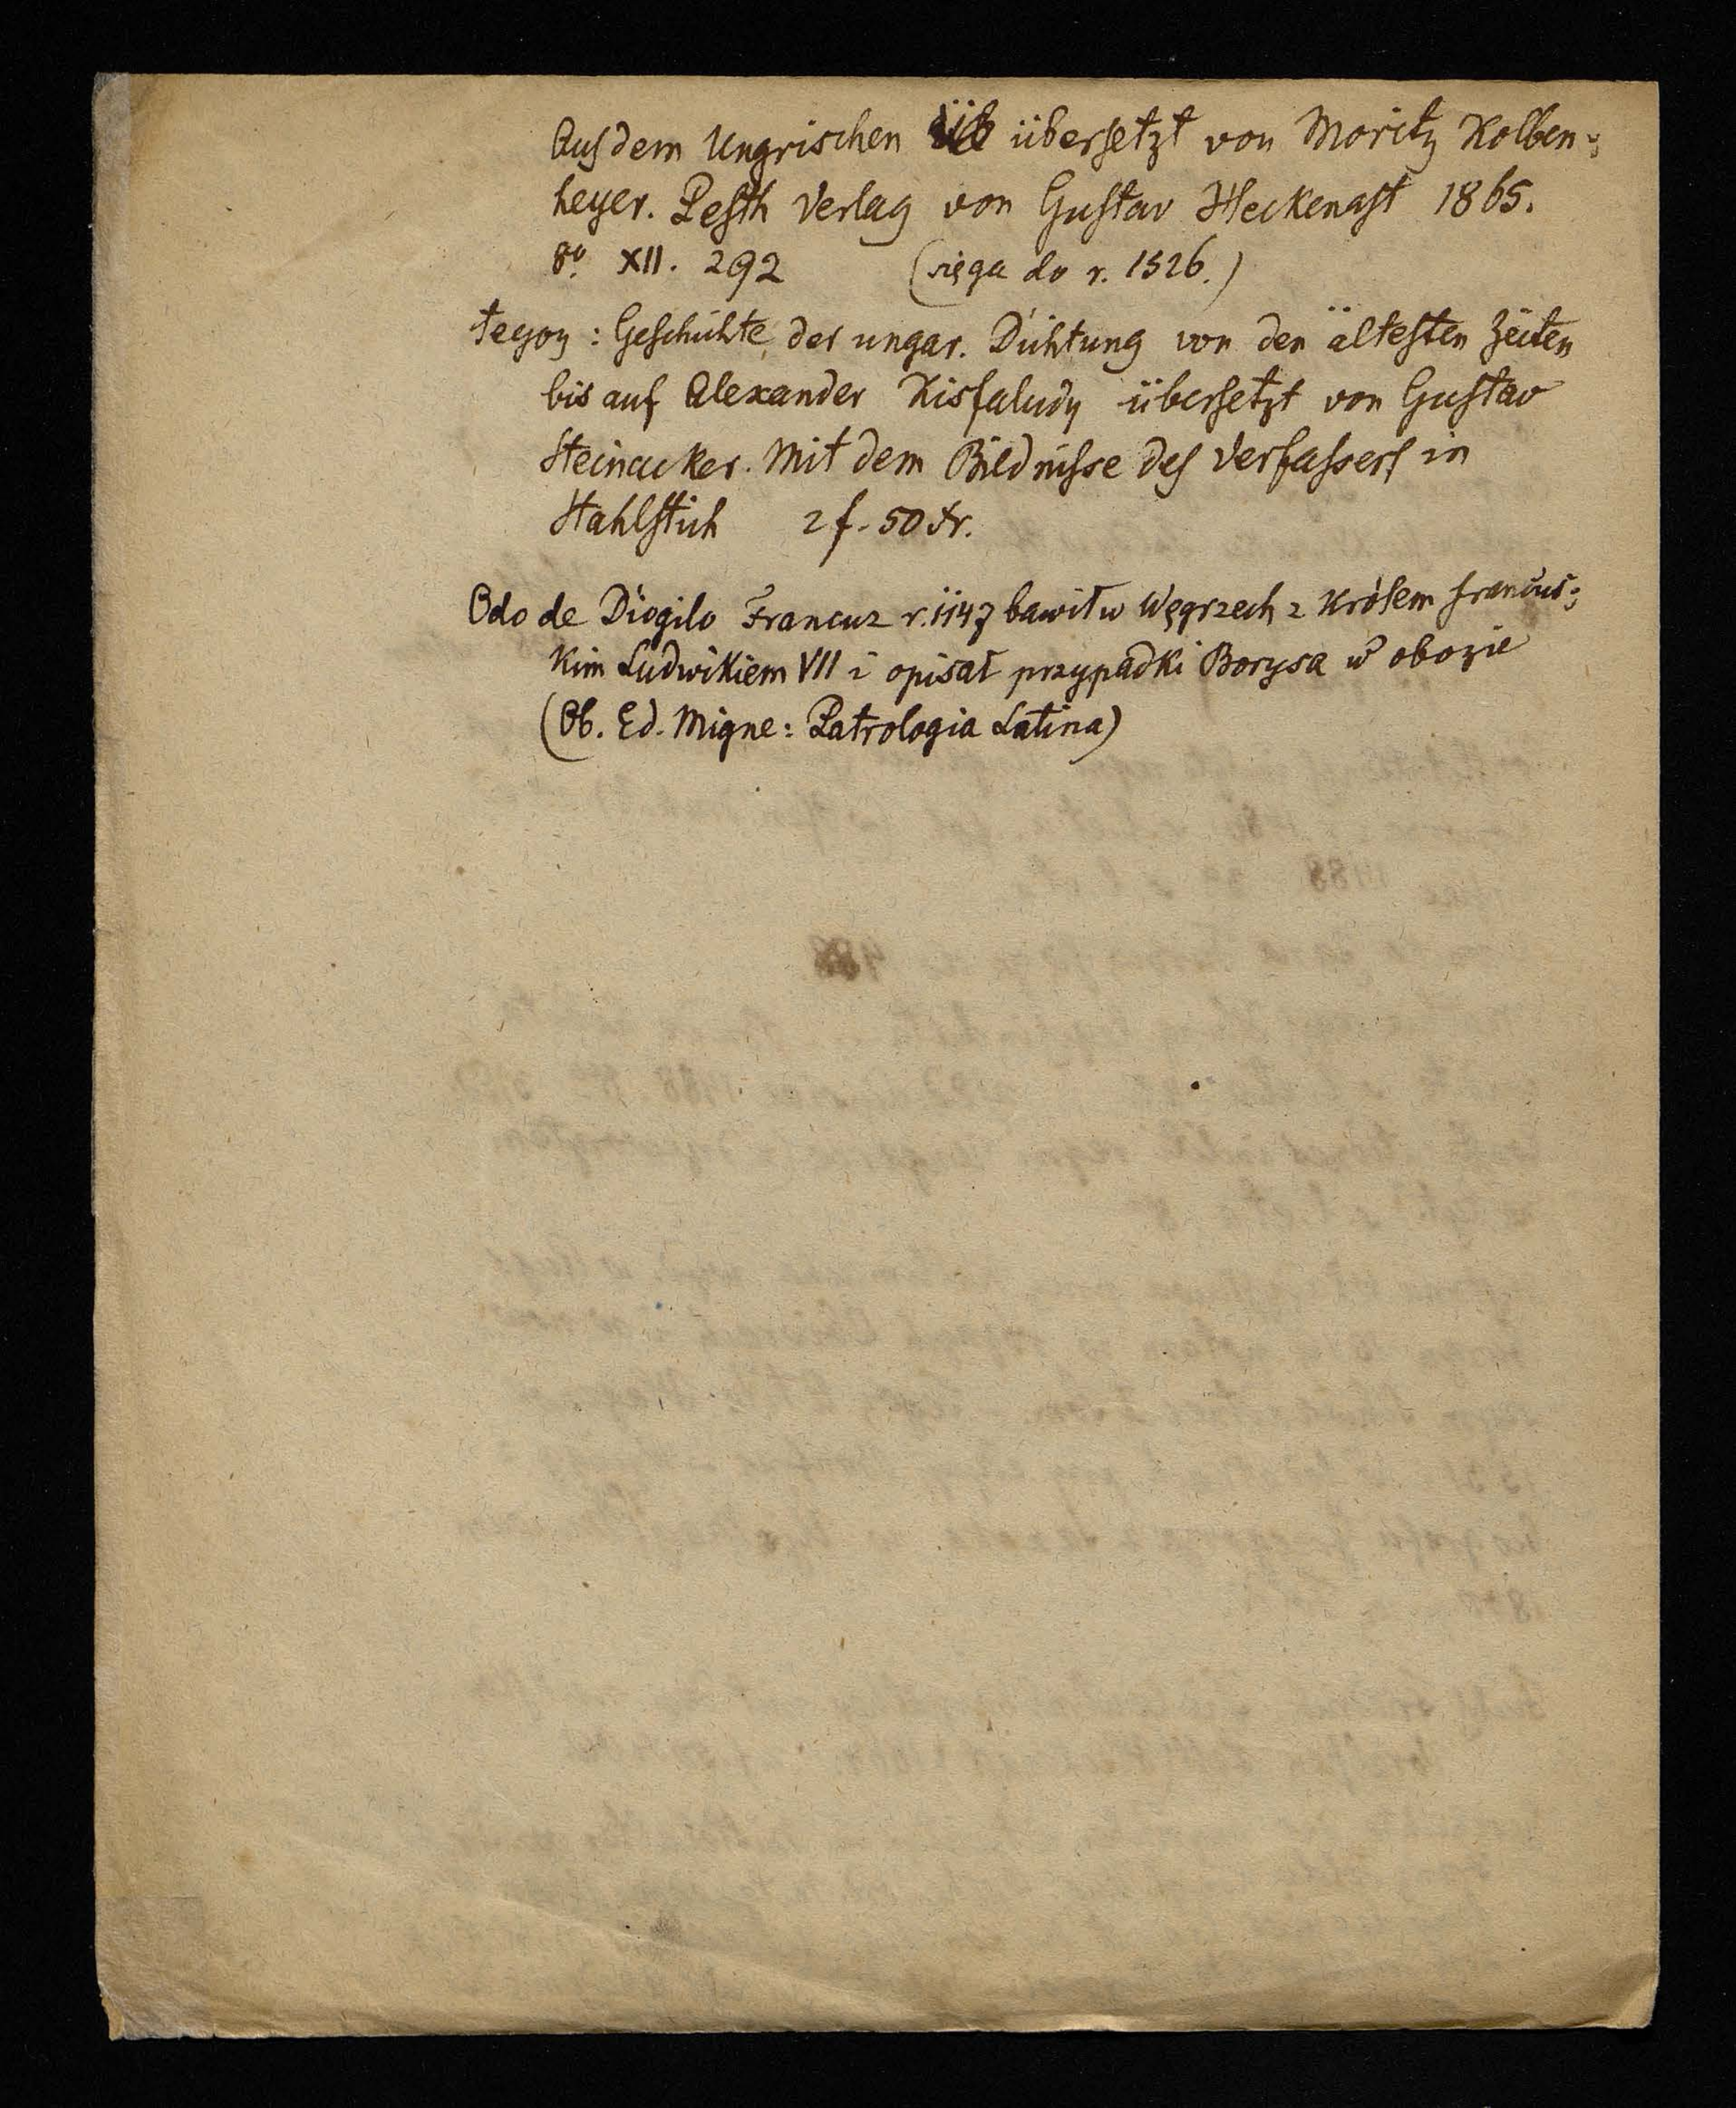 Aus dem Ungrischen üb übersetzt von Moritz Kolben-
heyer. Pesth Verlag von Gustav Heckenast 1865.
8º. XII. 292 (sięga do r. 1526.)
tegoż: Geschichte der ungar. Dichtung von den ältesten Zeiten
bis auf Alexander Kisfaludy übersetzt von Gustav
Steinacker. Mit dem Bildnisse des Verfassers in
Stahlstich 2 f. 50 kr.
Odo de Diogilo Francuz r. 1147 bawił w Węgrzech z królem francus-
kim Ludwikiem VII i opisał przypadki Borysa w obozie
(Ob. Ed. Migne: Patrologia Latina)